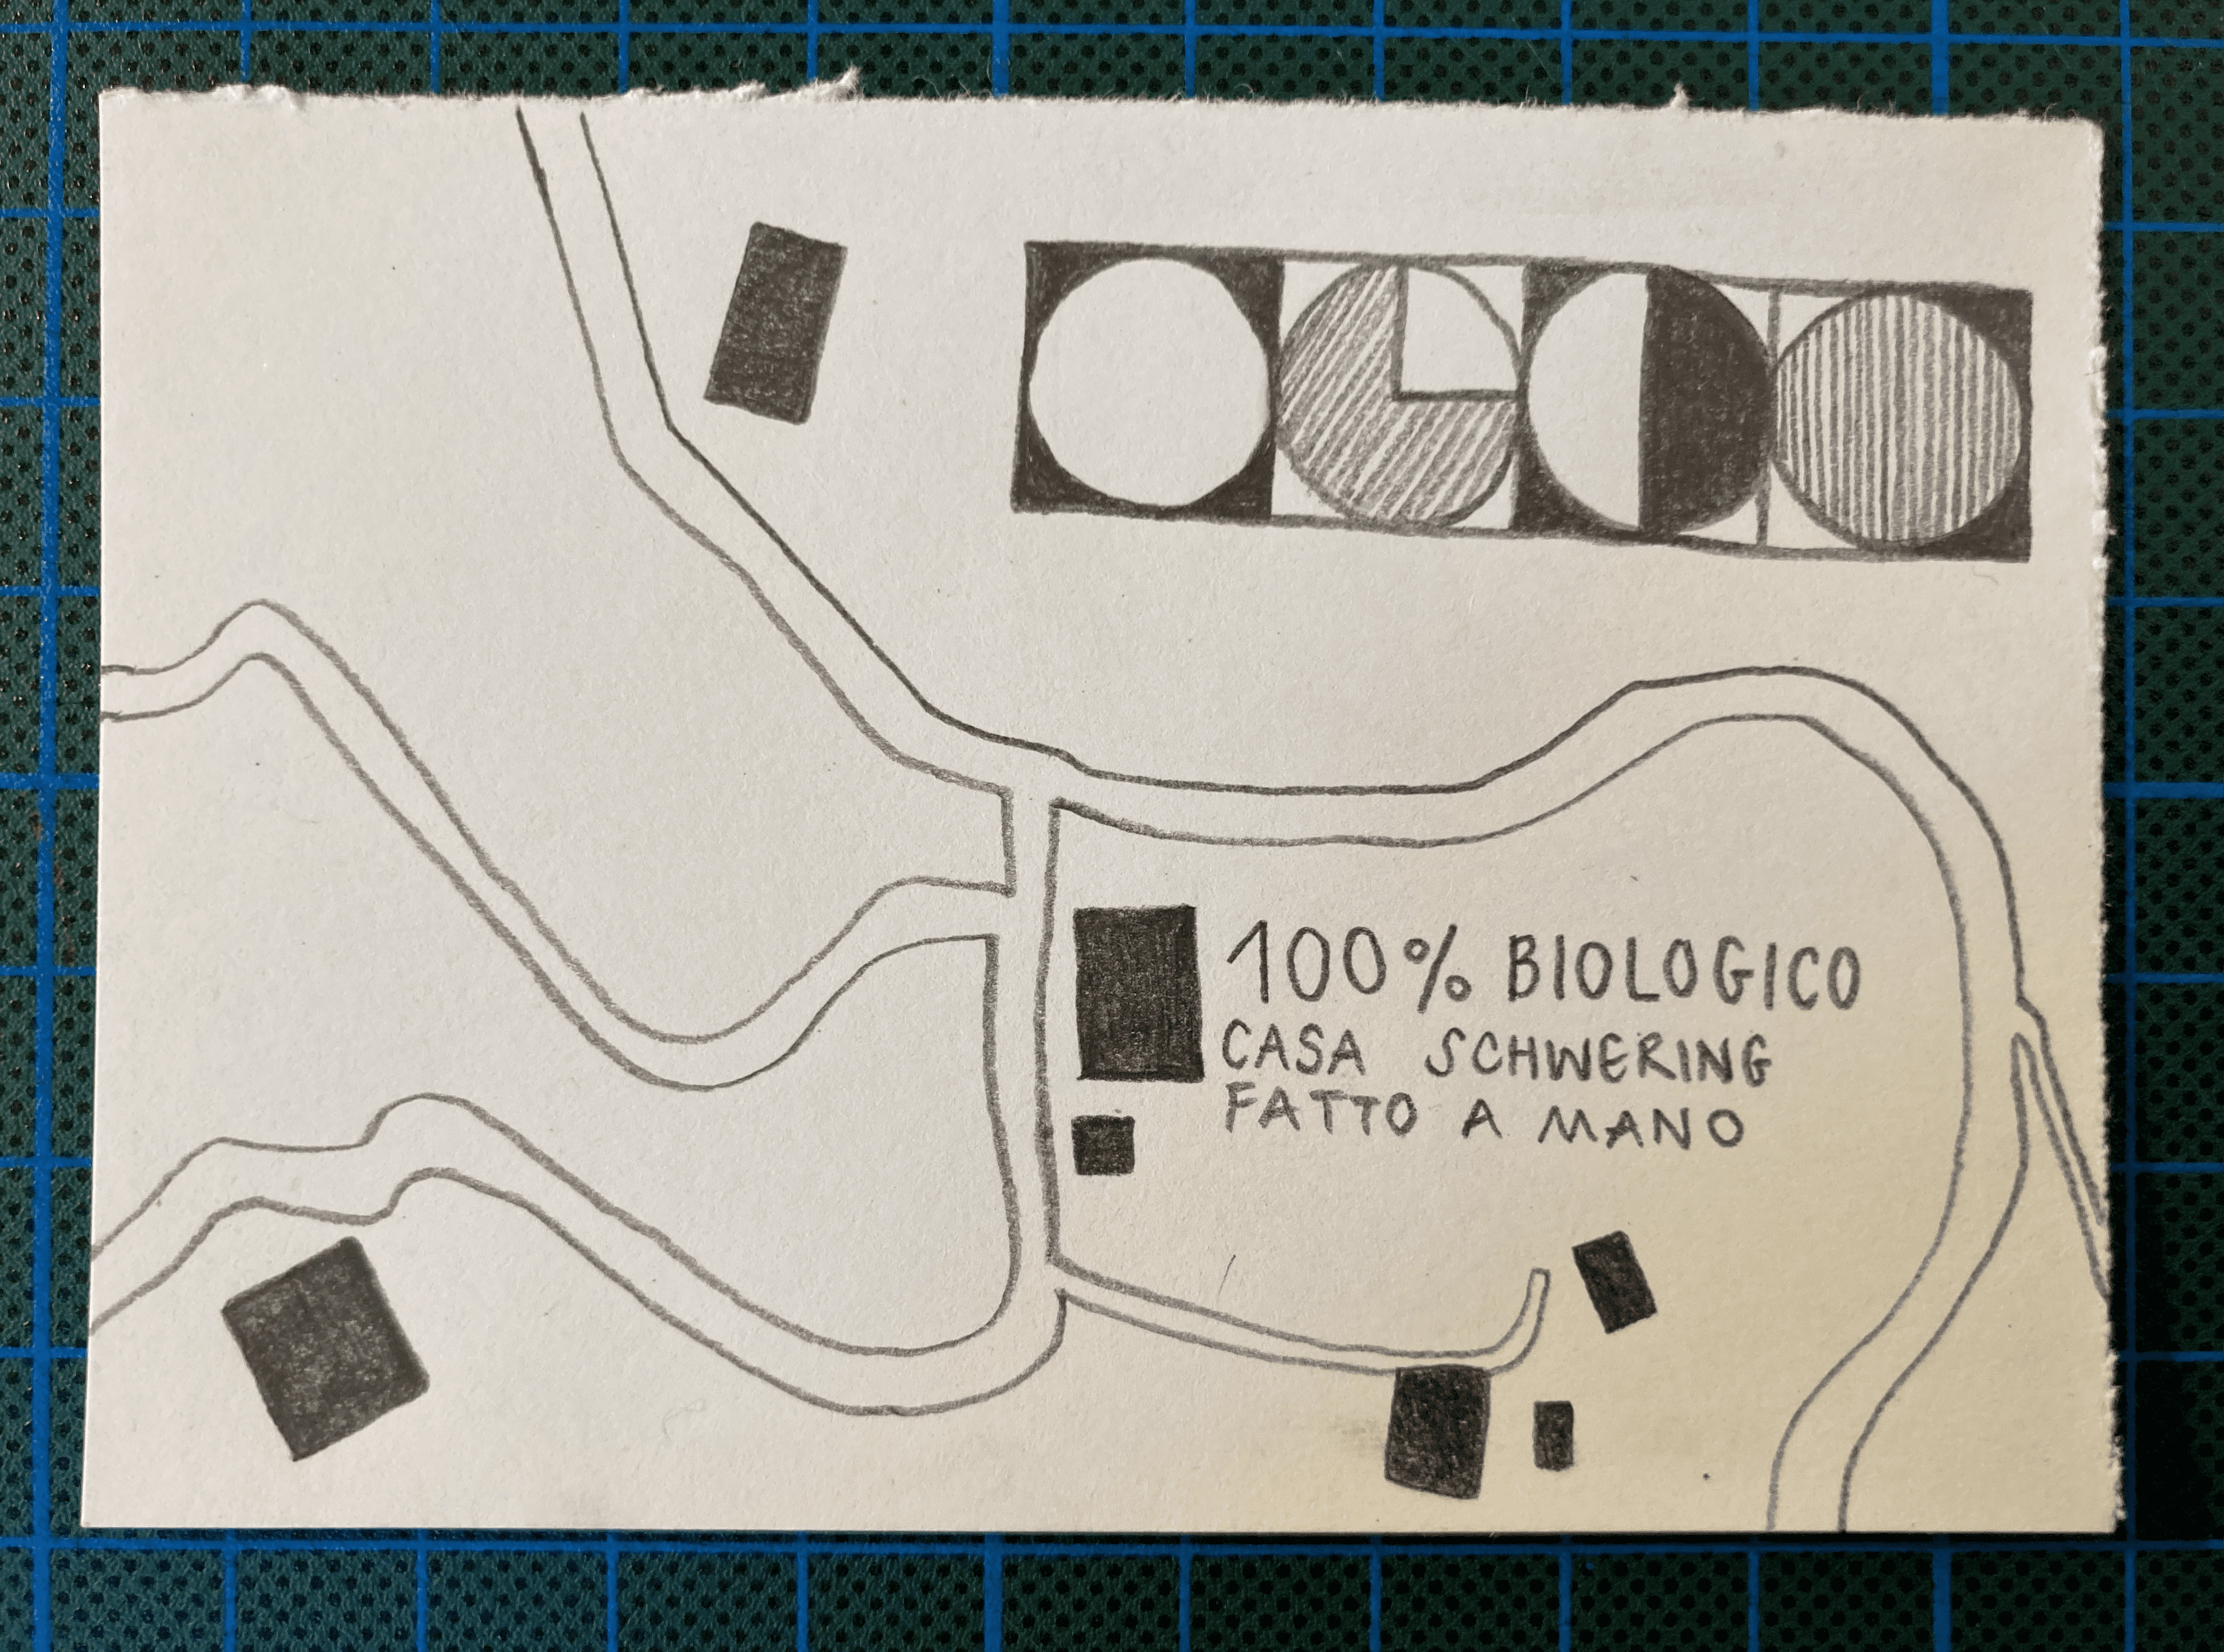 100% BIOLOGICO
CASA SCHWERING
FATTO A MANO